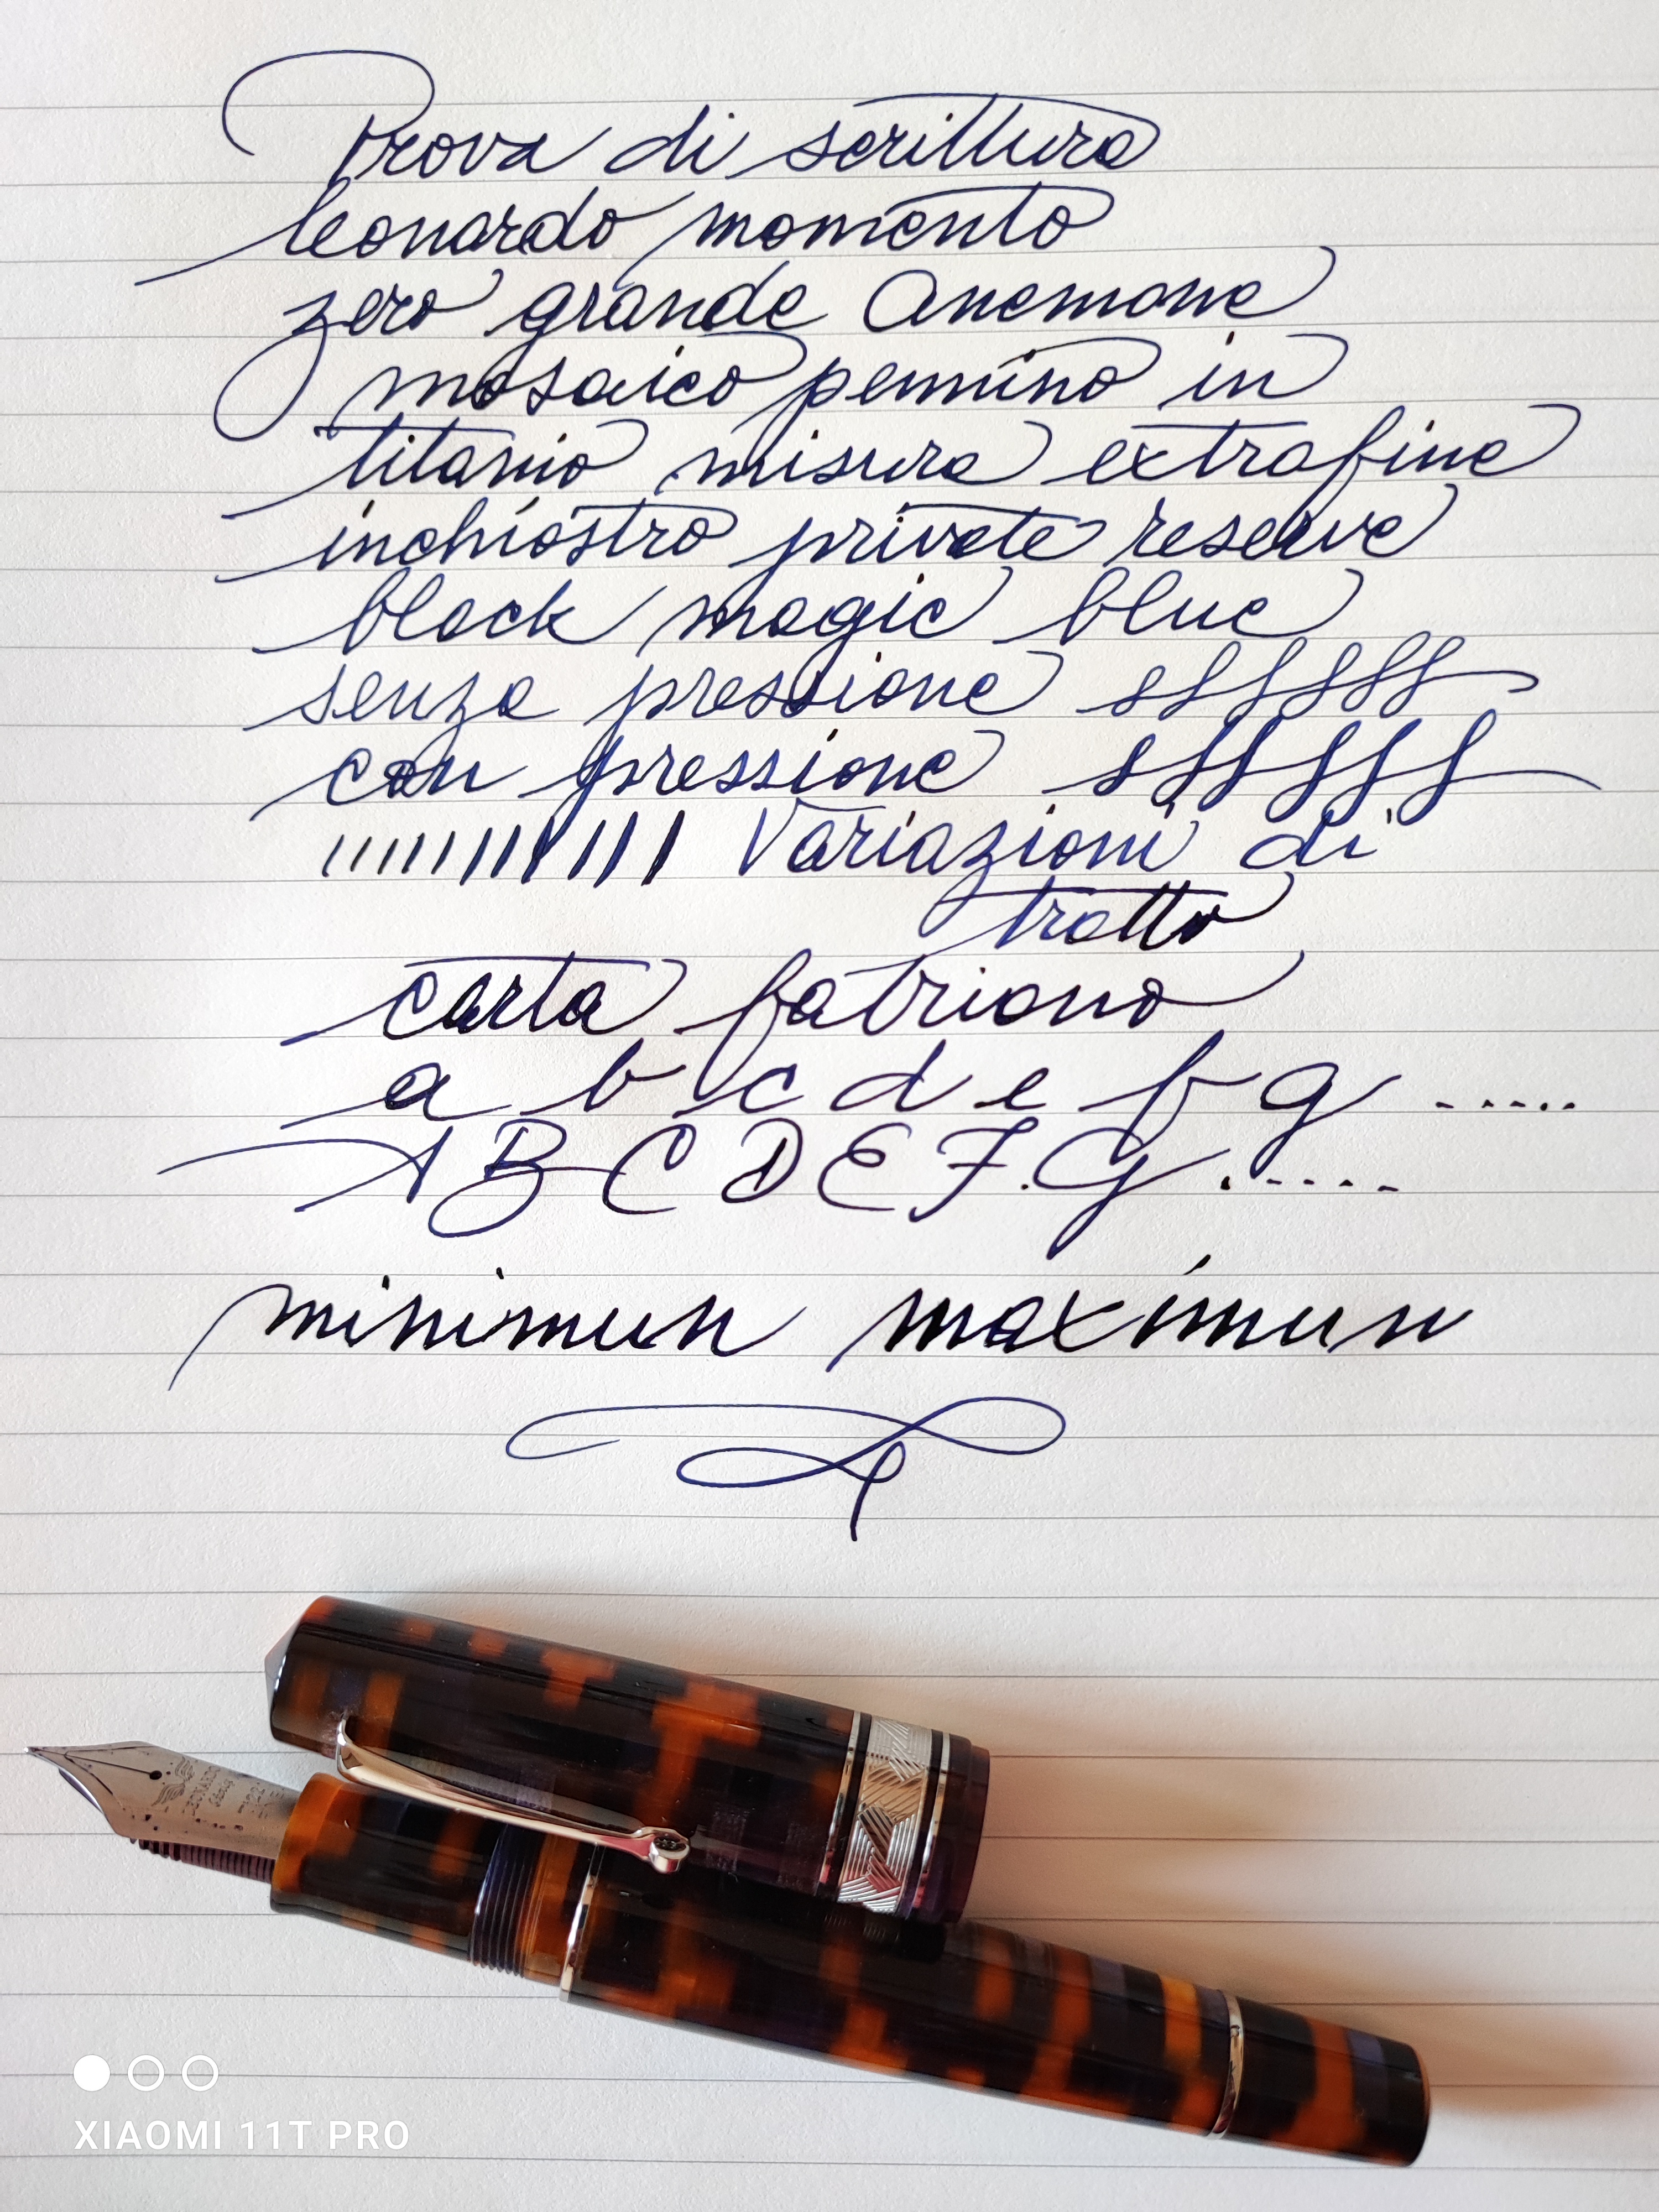 Prova di scrittura
leonardo momento
zero grande Anemone
mosaico pennino in
titanio misura extrafine
inchiostro private reserve
black magic blue
senza pressione sffffff
con pressione sffffff
Variazioni di
tratto
carta fabriano
a b c d e f g .....
A B C D E F. G .....
minimun maximun
XIAOMI 11T PRO